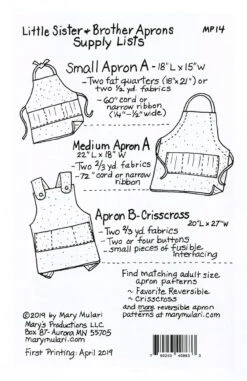 Little Sister & Brother Aprons
MP14
Supply Lists
Small Apron A - 18"L x 15"W
- Two fat quarters (18"x 21") or
two ½ yd. fabrics
- 60" cord or
narrow ribbon
(¼"-½" wide)
Medium Apron A
22"L x 18"W
- Two ⅔ yd. fabrics
- 72" cord or narrow
ribbon
Apron B-Crisscross
20"L x 27"W
- Two ⅔ yd. fabrics
- Two or four buttons
small pieces of fusible
interfacing
Find matching adult size
apron patterns
~ Favorite Reversible
~ Crisscross
and more reversible apron
patterns at marymulari.com
©2019 by Mary Mulari
Mary's Productions LLC
Box 87-Aurora MN 55705
marymulari.com
First Printing: April 2019